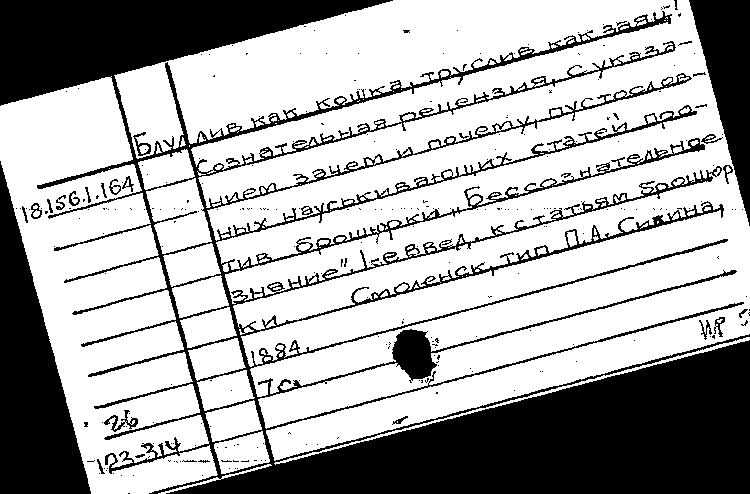 Блудлив как кошка, труслив как заяц!
18.156.1.164 Сознательная рецензия, с указа-
нием зачем и почему, пустослов-
ных науськивающих статей про-
тив брошюрки „Бессознательное
знание". 1-е введ. к статьям брошюр
ки. Смоленск, тип. П.А. Силина,
1884.
7 с.
26
123-314